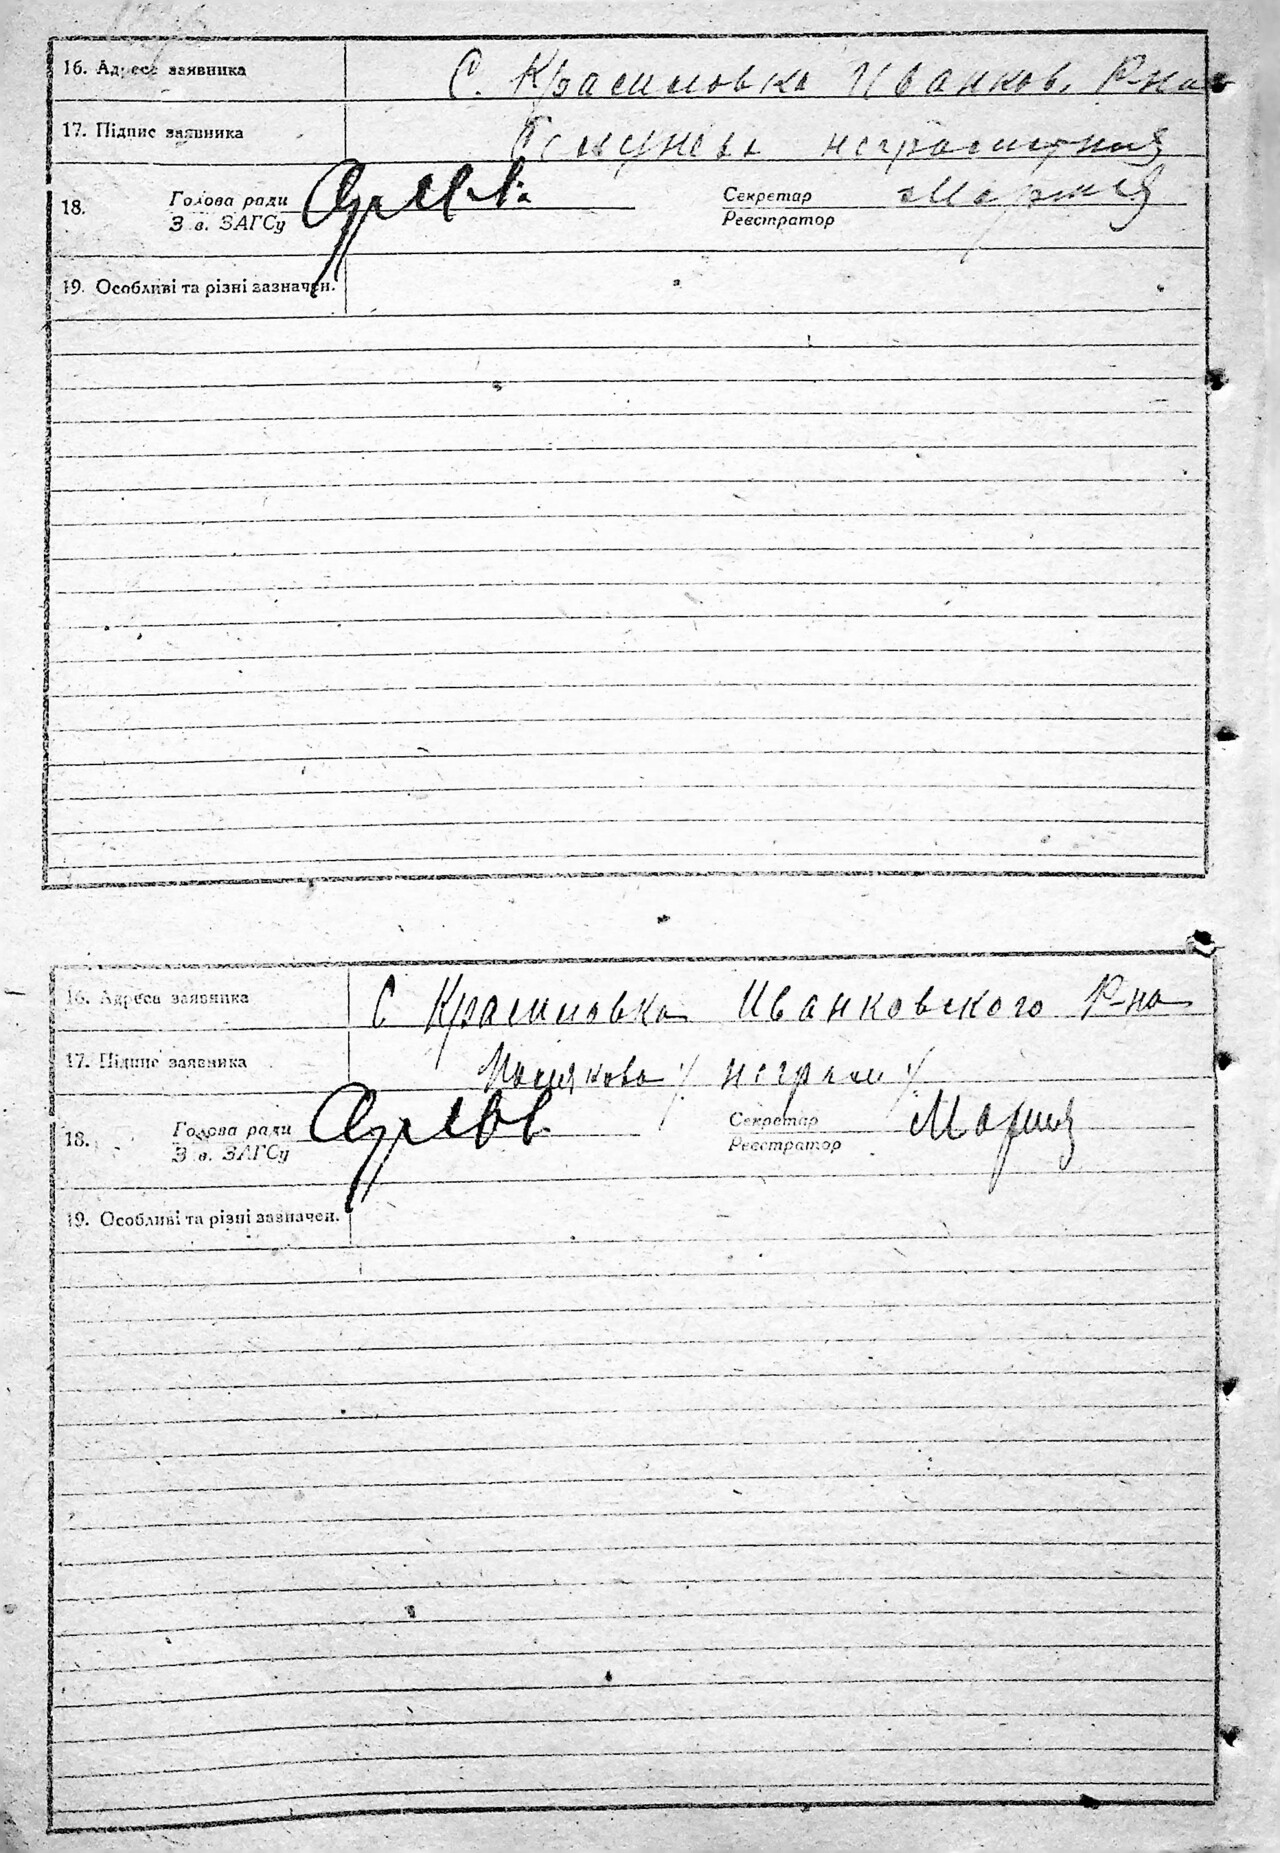 16. Адреса заявника С. Красиловка Иванков. Р-на
17. Підпис заявника неграмотная
18. Голова ради Секретар Мария
З в. ЗАГСу Реєстратор
19. Особливі та різні зазначен.
16. Адреса заявника С Красиловка Иванковского Р-на
17. Підпис заявника неграм
18. Голова ради Секретар Мария
З в. ЗАГСу Реєстратор
19. Особливі та різні зазначен.